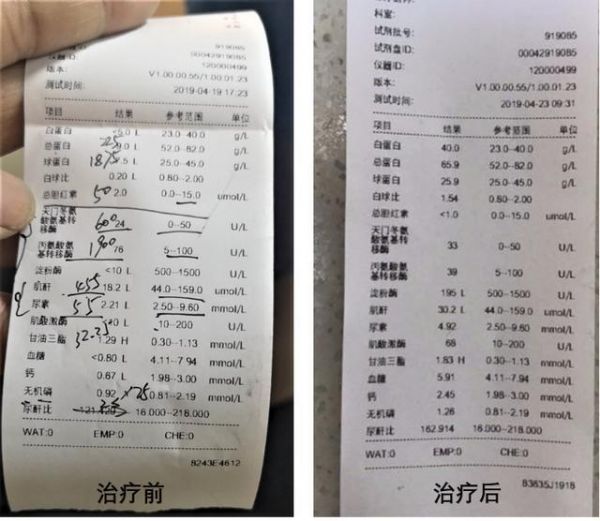 919085
00042919085
120000499
版本: V1.00.00.55/1.00.01.23
测试时间: 2019-04-19 17:23
项目 结果 参考范围 单位
白蛋白 <5.0 L 23.0--40.0 g/L
总蛋白 L 52.0--82.0 g/L
球蛋白 L 25.0--45.0 g/L
白球比 0.20 L 0.80--2.00
总胆红素 50 2.0 0.0--15.0 umol/L
天门冬氨
酸氨基转
移酶 600 24 0--50 U/L
丙氨酸氨
基转移酶 1900 76 5--100 U/L
淀粉酶 <10 L 500--1500 U/L
肌酐 455 18.2 L 44.0--159.0 umol/L
尿素 55 2.21 L 2.50--9.60 mmol/L
肌酸激酶 L 10--200 U/L
甘油三酯 32.25 1.29 H 0.30--1.13 mmol/L
血糖 <0.80 L 4.11--7.94 mmol/L
钙 0.67 L 1.98--3.00 mmol/L
无机磷 0.92 ×25 0.81--2.19 mmol/L
尿肝比 16.000--218.000
WAT:0 EMP:0 CHE:0
8243E4612
治疗前
科室:
试剂批号: 919085
试剂盘ID: 00042919085
仪器ID: 120000499
版本: V1.00.00.55/1.00.01.23
测试时间: 2019-04-23 09:31
项目 结果 参考范围 单位
白蛋白 40.0 23.0--40.0 g/L
总蛋白 65.9 52.0--82.0 g/L
球蛋白 25.9 25.0--45.0 g/L
白球比 1.54 0.80--2.00
总胆红素 <1.0 0.0--15.0 umol/L
天门冬氨
酸氨基转
移酶 33 0--50 U/L
丙氨酸氨
基转移酶 39 5--100 U/L
淀粉酶 195 L 500--1500 U/L
肌酐 30.2 L 44.0--159.0 umol/L
尿素 4.92 2.50--9.60 mmol/L
肌酸激酶 68 10--200 U/L
甘油三酯 1.83 H 0.30--1.13 mmol/L
血糖 5.91 4.11--7.94 mmol/L
钙 2.45 1.98--3.00 mmol/L
无机磷 1.26 0.81--2.19 mmol/L
尿肝比 162.914 16.000--218.000
WAT:0 EMP:0 CHE:0
83835J1918
治疗后